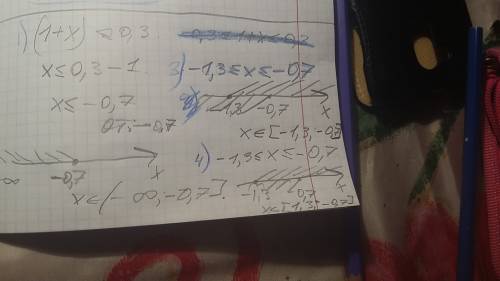 1) (1+x) ≤ 0,3
x ≤ 0,3 - 1
x ≤ -0,7
ОТ: -0,7
-0,7 x
x ∈ (-∞; -0,7].
3) -1,3 ≤ x ≤ -0,7
-1,3 -0,7 x
x ∈ [-1,3; -0,7]
4) -1,3 ≤ x ≤ -0,7
-1,3 -0,7 x
x ∈ [-1,3; -0,7]